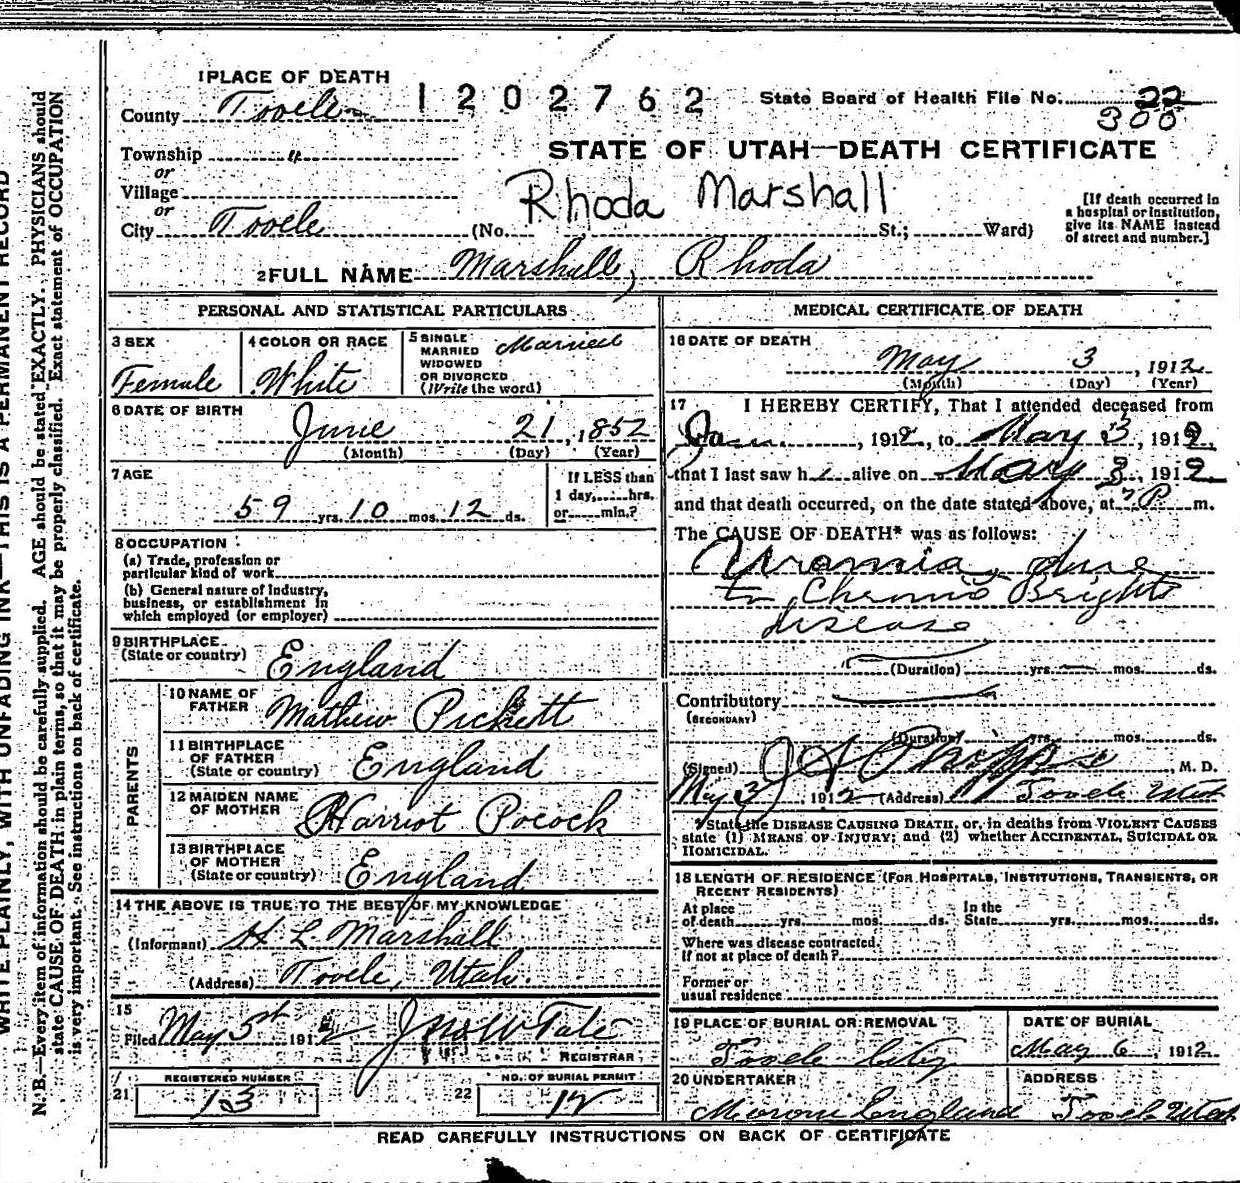 1 PLACE OF DEATH
1202762
State Board of Health File No. 22
300
County Tooele
STATE OF UTAH—DEATH CERTIFICATE
Township "
or
Village
or
Rhoda Marshall
[If death occurred in
a hospital or institution,
give its NAME instead
of street and number.]
City Tooele (No. St.; Ward)
2 FULL NAME Marshall, Rhoda
PERSONAL AND STATISTICAL PARTICULARS
3 SEX
Female
4 COLOR OR RACE
White
5 SINGLE
MARRIED
WIDOWED
OR DIVORCED
(Write the word)
Married
6 DATE OF BIRTH
June 21, 1852
(Month) (Day) (Year)
7 AGE
59 yrs. 10 mos. 12 ds.
If LESS than
1 day, hrs.
or min.?
8 OCCUPATION
(a) Trade, profession or
particular kind of work
(b) General nature of industry,
business, or establishment in
which employed (or employer)
9 BIRTHPLACE
(State or country)
England
PARENTS
10 NAME OF
FATHER
Mathew Pickett
11 BIRTHPLACE
OF FATHER
(State or country)
England
12 MAIDEN NAME
OF MOTHER
Harriot Pocock
13 BIRTHPLACE
OF MOTHER
(State or country)
England
14 THE ABOVE IS TRUE TO THE BEST OF MY KNOWLEDGE
(Informant) H L Marshall
(Address) Tooele, Utah.
15
Filed May 5st 1912 Jno W Tate
REGISTRAR
21 REGISTERED NUMBER
13
22 NO. OF BURIAL PERMIT
12
MEDICAL CERTIFICATE OF DEATH
16 DATE OF DEATH
May 3, 1912
(Month) (Day) (Year)
17 I HEREBY CERTIFY, That I attended deceased from
Jan, 1912, to May 3, 1912,
that I last saw h alive on May 3, 1912
and that death occurred, on the date stated above, at 7 P. m.
The CAUSE OF DEATH* was as follows:
Uraemia, due
to Chronic Brights
disease
(Duration) yrs. mos. ds.
Contributory
(SECONDARY)
(Duration) yrs. mos. ds.
(Signed) M. D.
May 3, 1912 (Address) Tooele Utah
*State the DISEASE CAUSING DEATH, or, in deaths from VIOLENT CAUSES
state (1) MEANS OF INJURY; and (2) whether ACCIDENTAL, SUICIDAL OR
HOMICIDAL.
18 LENGTH OF RESIDENCE (FOR HOSPITALS, INSTITUTIONS, TRANSIENTS, OR
RECENT RESIDENTS)
At place
of death yrs. mos. ds.
In the
State yrs. mos. ds.
Where was disease contracted
if not at place of death?
Former or
usual residence
19 PLACE OF BURIAL OR REMOVAL
Tooele City
DATE OF BURIAL
May 6, 1912
20 UNDERTAKER
Moroni England
ADDRESS
Tooele Utah
READ CAREFULLY INSTRUCTIONS ON BACK OF CERTIFICATE
WRITE PLAINLY, WITH UNFADING INK—THIS IS A PERMANENT RECORD
N. B.—Every item of information should be carefully supplied. AGE should be stated EXACTLY. PHYSICIANS should
state CAUSE OF DEATH in plain terms, so that it may be properly classified. Exact statement of OCCUPATION
is very important. See instructions on back of certificate.